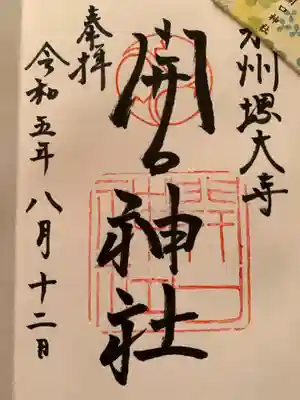 口神社
泉州堺大寺
開口神社
奉拝
令和五年八月十二日